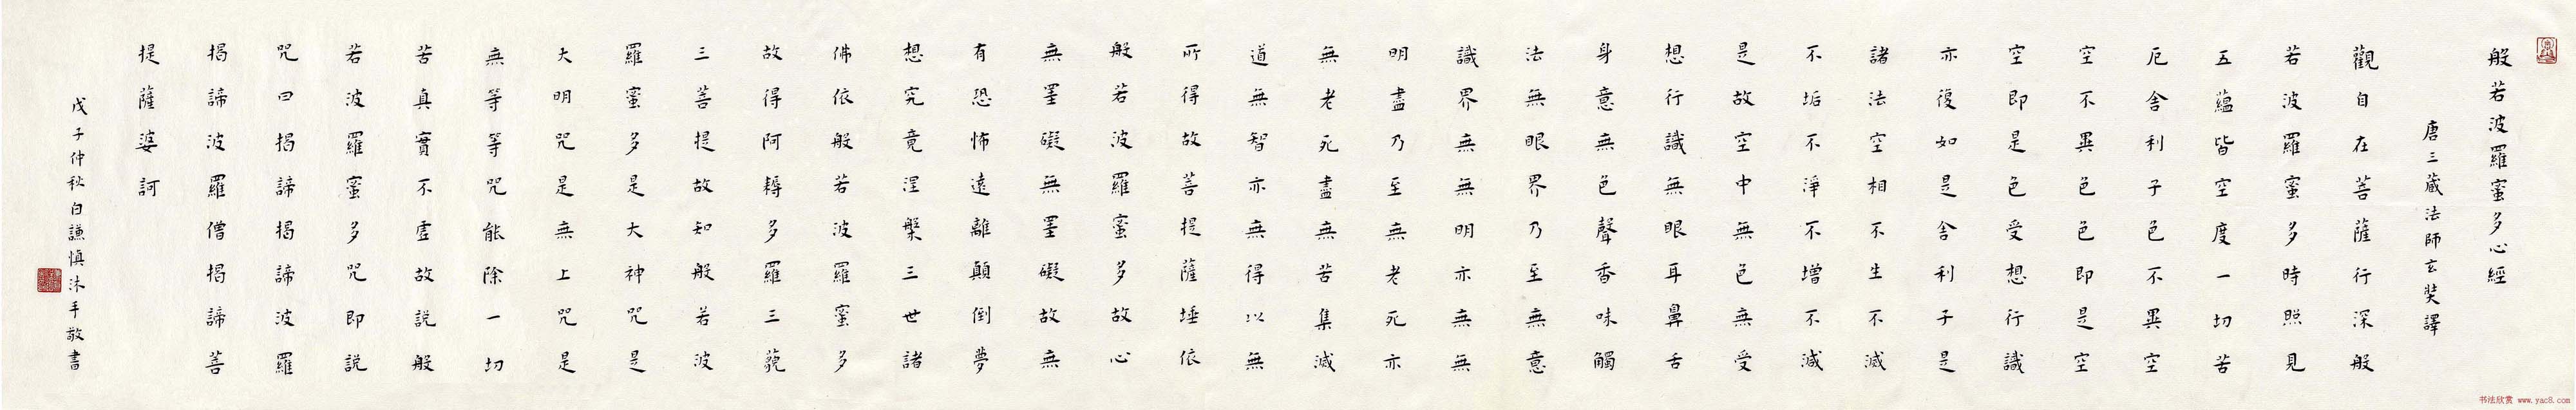 般若波羅蜜多心經
唐三藏法師玄奘譯
觀自在菩薩行深般
若波羅蜜多時照見
五蘊皆空度一切苦
厄舍利子色不異空
空不異色色即是空
空即是色受想行識
亦復如是舍利子是
諸法空相不生不滅
不垢不淨不增不減
是故空中無色無受
想行識無眼耳鼻舌
身意無色聲香味觸
法無眼界乃至無意
識界無無明亦無無
明盡乃至無老死亦
無老死盡無苦集滅
道無智亦無得以無
所得故菩提薩埵依
般若波羅蜜多故心
無罣礙無罣礙故無
有恐怖遠離顛倒夢
想究竟涅槃三世諸
佛依般若波羅蜜多
故得阿耨多羅三藐
三菩提故知般若波
羅蜜多是大神咒是
大明咒是無上咒是
無等等咒能除一切
苦真實不虛故說般
若波羅蜜多咒即說
咒曰揭諦揭諦波羅
揭諦波羅僧揭諦菩
提薩婆訶
戊子仲秋白謙慎沐手敬書
书法欣赏 www.yac8.com